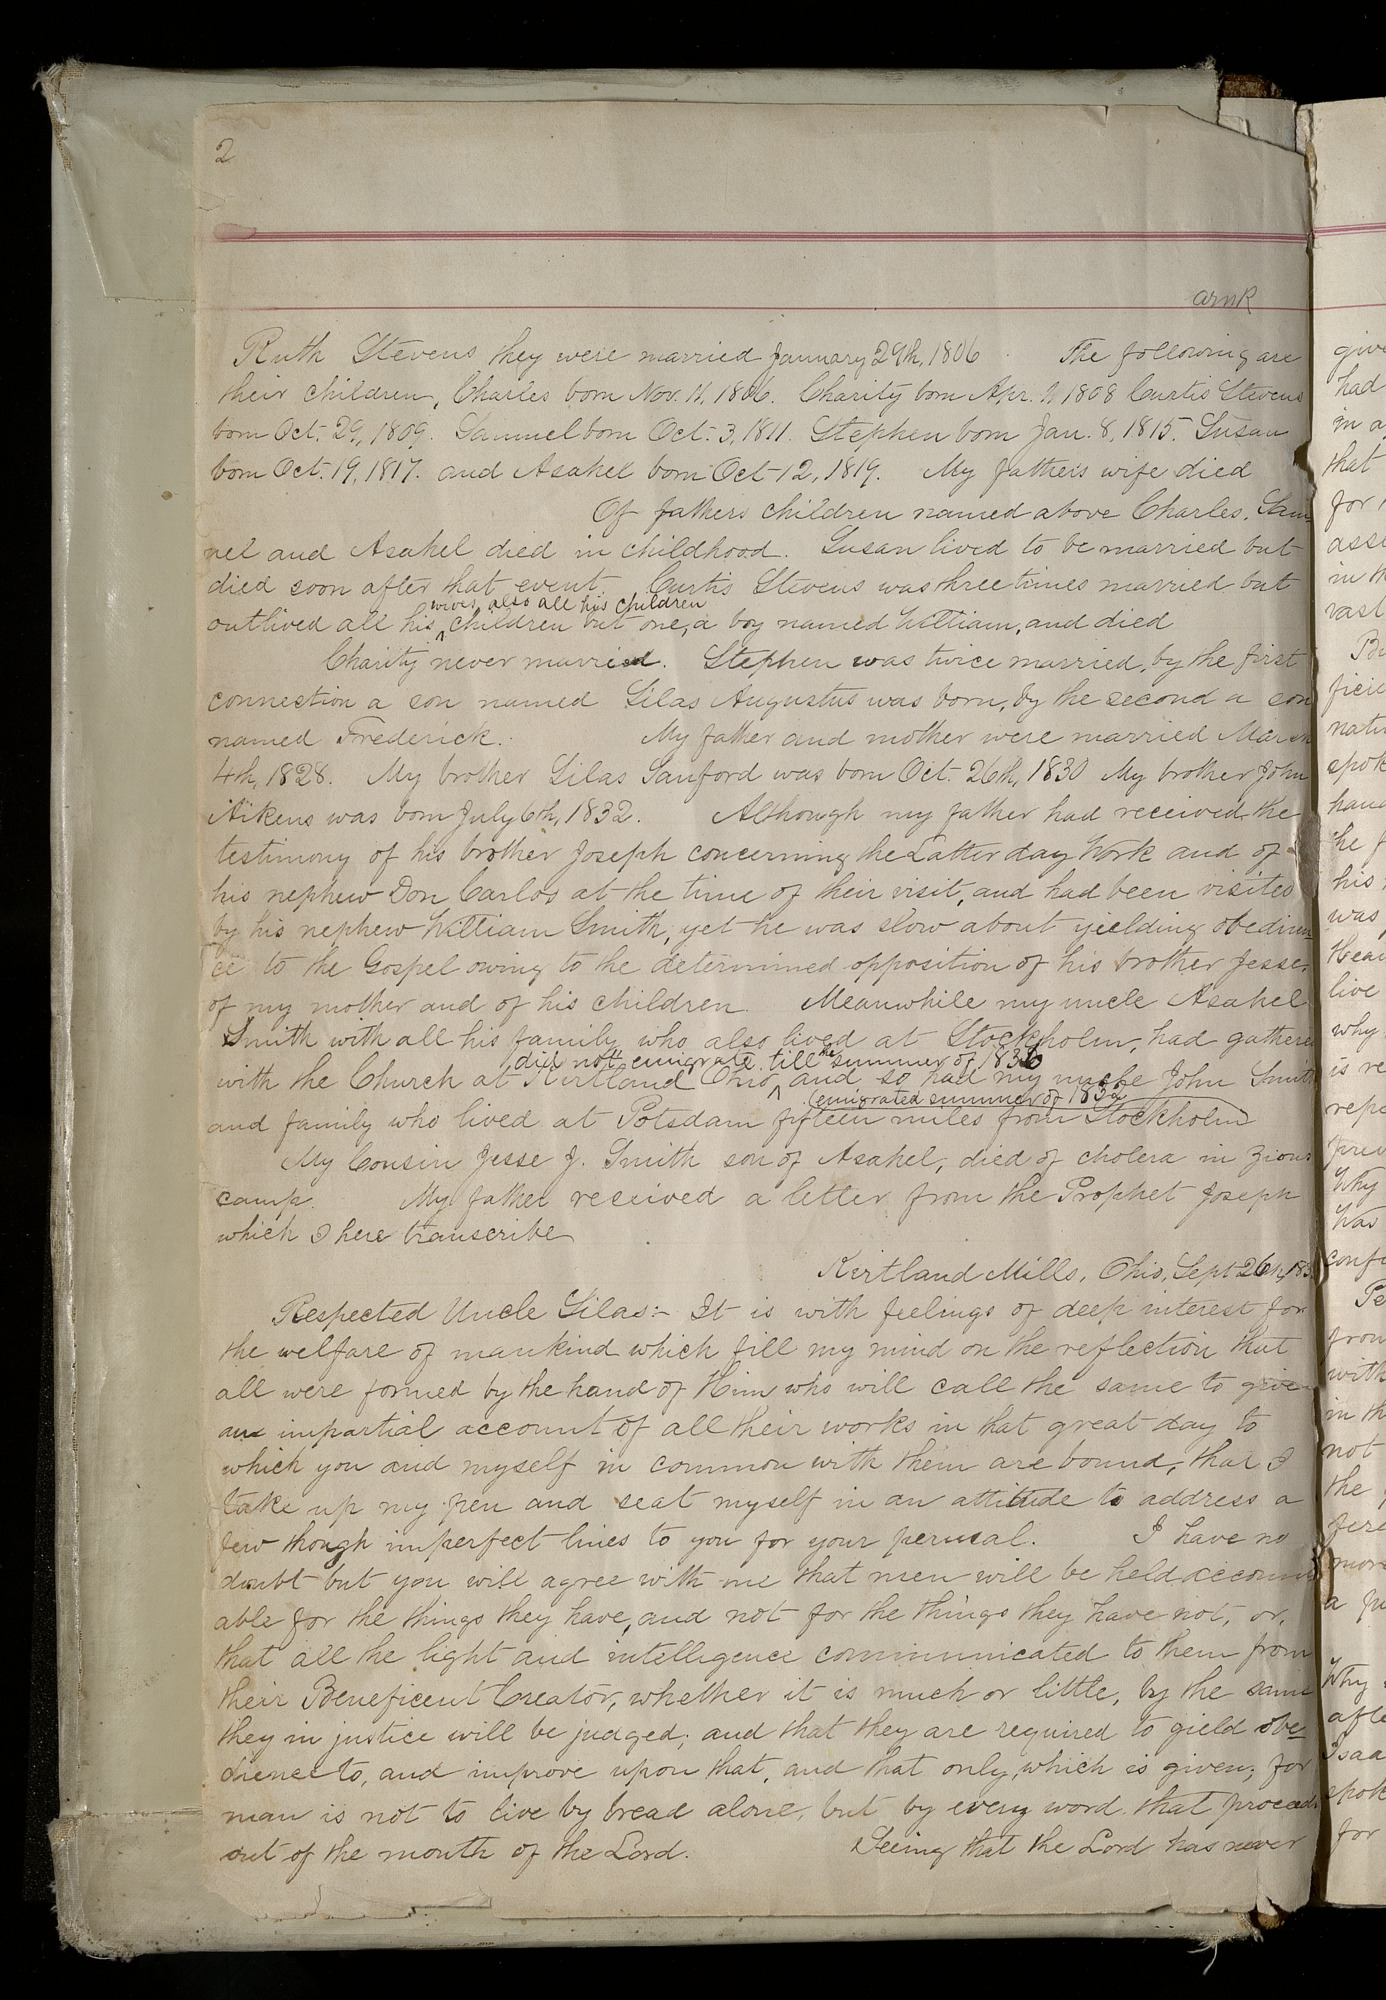 2
arnR
Ruth Stevens they were married January 29th, 1806 The following are
their children, Charles born Nov. 11, 1806. Charity born Apr. 1, 1808 Curtis Stevens
born Oct. 29, 1809. Samuel born Oct. 3, 1811. Stephen born Jan. 8, 1815. Susan
born Oct. 19, 1817. and Asahel born Oct 12, 1819. My fathers wife died
Of fathers children named above Charles, Sam-
uel and Asahel died in childhood. Susan lived to be married but
died soon after that event. Curtis Stevens was three times married but
wives, also all his children
outlived all his ^ children but one, a boy named William, and died
Charity never married. Stephen was twice married, by the first
connection a son named Silas Augustus was born, by the second a son
named Frederick. My father and mother were married March
4th, 1828. My brother Silas Sanford was born Oct. 26th, 1830 My brother John
Aikens was born July 6th, 1832. Although my father had received the
testimony of his brother Joseph concerning the Latter day Work and of
his nephew Don Carlos at the time of their visit, and had been visited
by his nephew William Smith, yet he was slow about yielding obedien-
ce to the Gospel owing to the determined opposition of his brother Jesse,
of my mother and of his children. Meanwhile my uncle Asahel
Smith with all his family who also lived at Stockholm, had gathered
did not emigrate till the summer of 1836
with the Church at Kirtland Ohio ^ and so had my uncle John Smith
(emigrated summer of 1832
and family who lived at Potsdam fifteen miles from Stockholm)
My Cousin Jesse J. Smith son of Asahel, died of cholera in Zions
camp. My father received a letter from the Prophet Joseph
which I here transcribe
Kirtland Mills, Ohio, Sept 26th, 183
Respected Uncle Silas:- It is with feelings of deep interest for
the welfare of mankind which fill my mind on the reflection that
all were formed by the hand of Him who will call the same to give
an impartial account of all their works in that great day to
which you and myself in common with them are bound, that I
take up my pen and seat myself in an attitude to address a
few though imperfect lines to you for your perusal. I have no
doubt but you will agree with me that men will be held account-
able for the things they have, and not for the things they have not, or,
that all the light and intelligence communicated to them from
their Beneficent Creator, whether it is much or little, by the same
they in justice will be judged; and that they are required to yield obe-
dience to, and improve upon that, and that only, which is given; for
man is not to live by bread alone, but by every word that proceeds
out of the mouth of the Lord. Seeing that the Lord has never